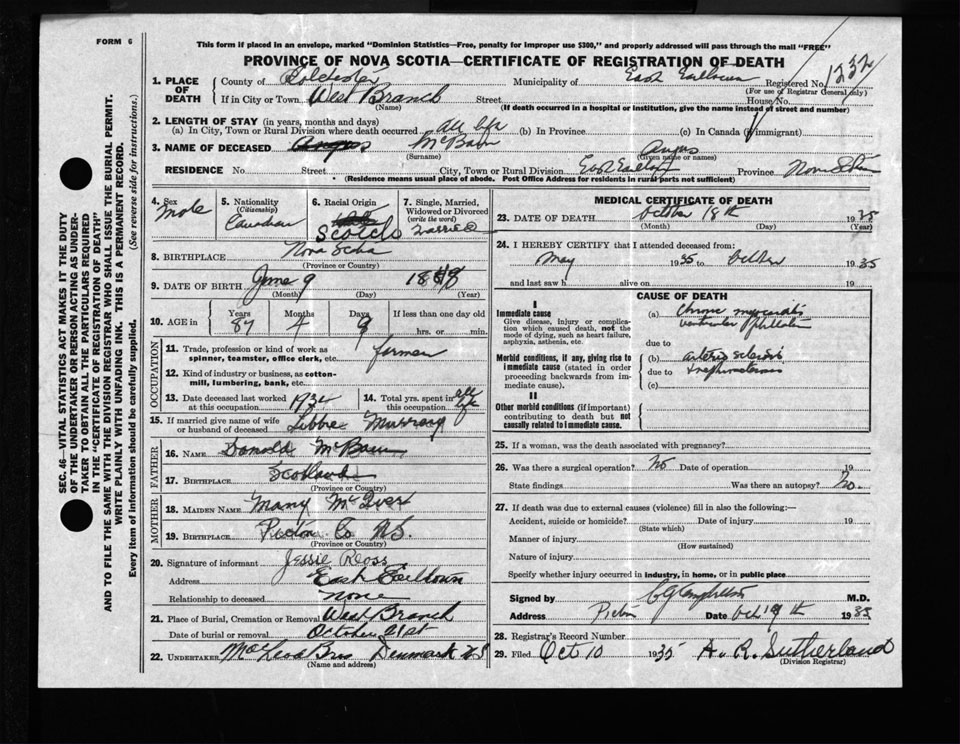 FORM 6
This form if placed in an envelope, marked "Dominion Statistics—Free, penalty for improper use $300," and properly addressed will pass through the mail "FREE"
PROVINCE OF NOVA SCOTIA—CERTIFICATE OF REGISTRATION OF DEATH
1. PLACE OF DEATH
County of Colchester Municipality of East Registered No. 1232
(For use of Registrar General only)
If in City or Town West Branch Street House No.
(Name) (If death occurred in a hospital or institution, give the name instead of street and number)
2. LENGTH OF STAY (in years, months and days)
(a) In City, Town or Rural Division where death occurred all life (b) In Province (c) In Canada (if immigrant)
3. NAME OF DECEASED Angus McBain Angus
(Surname) (Given name or names)
RESIDENCE No. Street City, Town or Rural Division East Province Nova Scotia
(Residence means usual place of abode. Post Office Address for residents in rural parts not sufficient)
4. Sex
Male
5. Nationality
(Citizenship)
Canadian
6. Racial Origin
Scotch
7. Single, Married, Widowed or Divorced
(write the word)
Married
8. BIRTHPLACE Nova Scotia
(Province or Country)
9. DATE OF BIRTH June 9 18
(Month) (Day) (Year)
10. AGE in Years Months Days If less than one day old
87 4 9 hrs. or min.
OCCUPATION
11. Trade, profession or kind of work as spinner, teamster, office clerk, etc. farmer
12. Kind of industry or business, as cotton-mill, lumbering, bank, etc.
13. Date deceased last worked at this occupation 1934
14. Total yrs. spent in this occupation all life
15. If married give name of wife or husband of deceased Libbie Murray
FATHER
16. NAME Donald McBain
17. BIRTHPLACE Scotland
(Province or Country)
MOTHER
18. MAIDEN NAME
19. BIRTHPLACE Pictou Co N.S.
(Province or Country)
20. Signature of informant Jessie Ross
Address East
Relationship to deceased none
21. Place of Burial, Cremation or Removal West Branch
Date of burial or removal October 21st
22. UNDERTAKER McLeod Bros Denmark N S
(Name and address)
MEDICAL CERTIFICATE OF DEATH
23. DATE OF DEATH October 18th 1935
(Month) (Day) (Year)
24. I HEREBY CERTIFY that I attended deceased from:
May 1935 to October 1935
and last saw h alive on 19
CAUSE OF DEATH
I
Immediate cause
Give disease, injury or complication which caused death, not the mode of dying, such as heart failure, asphyxia, asthenia, etc.
(a) Chronic myocarditis
ventricular
due to
Morbid conditions, if any, giving rise to immediate cause (stated in order proceeding backwards from immediate cause).
(b) arterio sclerosis
due to
(c)
II
Other morbid conditions (if important) contributing to death but not causally related to immediate cause.
25. If a woman, was the death associated with pregnancy?
26. Was there a surgical operation? No Date of operation 19
State findings Was there an autopsy? No.
27. If death was due to external causes (violence) fill in also the following:—
Accident, suicide or homicide? Date of injury 19
(State which)
Manner of injury
(How sustained)
Nature of injury
Specify whether injury occurred in industry, in home, or in public place
Signed by M.D.
Address Pictou Date Oct 19th 1935
28. Registrar's Record Number
29. Filed Oct 10 1935 A. R. Sutherland
(Division Registrar)
SEC. 46—VITAL STATISTICS ACT MAKES IT THE DUTY
OF THE UNDERTAKER OR PERSON ACTING AS UNDER-
TAKER TO OBTAIN ALL THE PARTICULARS REQUIRED
IN THE "CERTIFICATE OF REGISTRATION OF DEATH"
AND TO FILE THE SAME WITH THE DIVISION REGISTRAR WHO SHALL ISSUE THE BURIAL PERMIT.
WRITE PLAINLY WITH UNFADING INK. THIS IS A PERMANENT RECORD.
Every item of information should be carefully supplied. (See reverse side for instructions.)